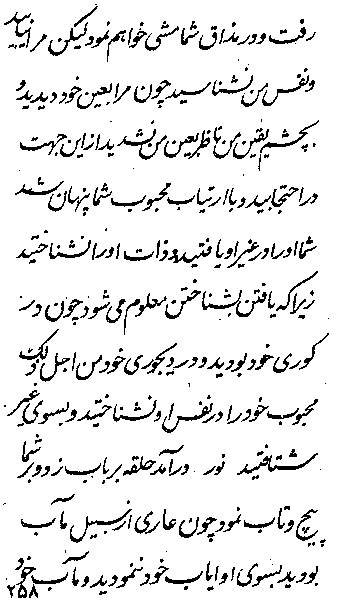 رفت و در مذاق شما مشی خواهم نمود لیکن مرا نیابید
و نفس من نشناسید چون مرا بعین خود دیدید و
بچشم یقین من ناظر بعین من نشدید از این جهت
در احتجابید و با ارتیاب محبوب شما پنهان شد
شما او را در غیر او یافتید و ذات او را نشناختید
زیرا که یافتن بشناختن معلوم می شود چون در
کوری خود بودید و در دیجوری خود من اجل ذلک
محبوب خود را در نفس او نشناختید و بسوی غیر
شتافتید نور درآمد حلقه بر باب زد و بر شما
پیچ و تاب نمود چون عاری از سبیل مآب
بودید بسوی او ایاب خود ننمودید و مآب خود
۲۵۸